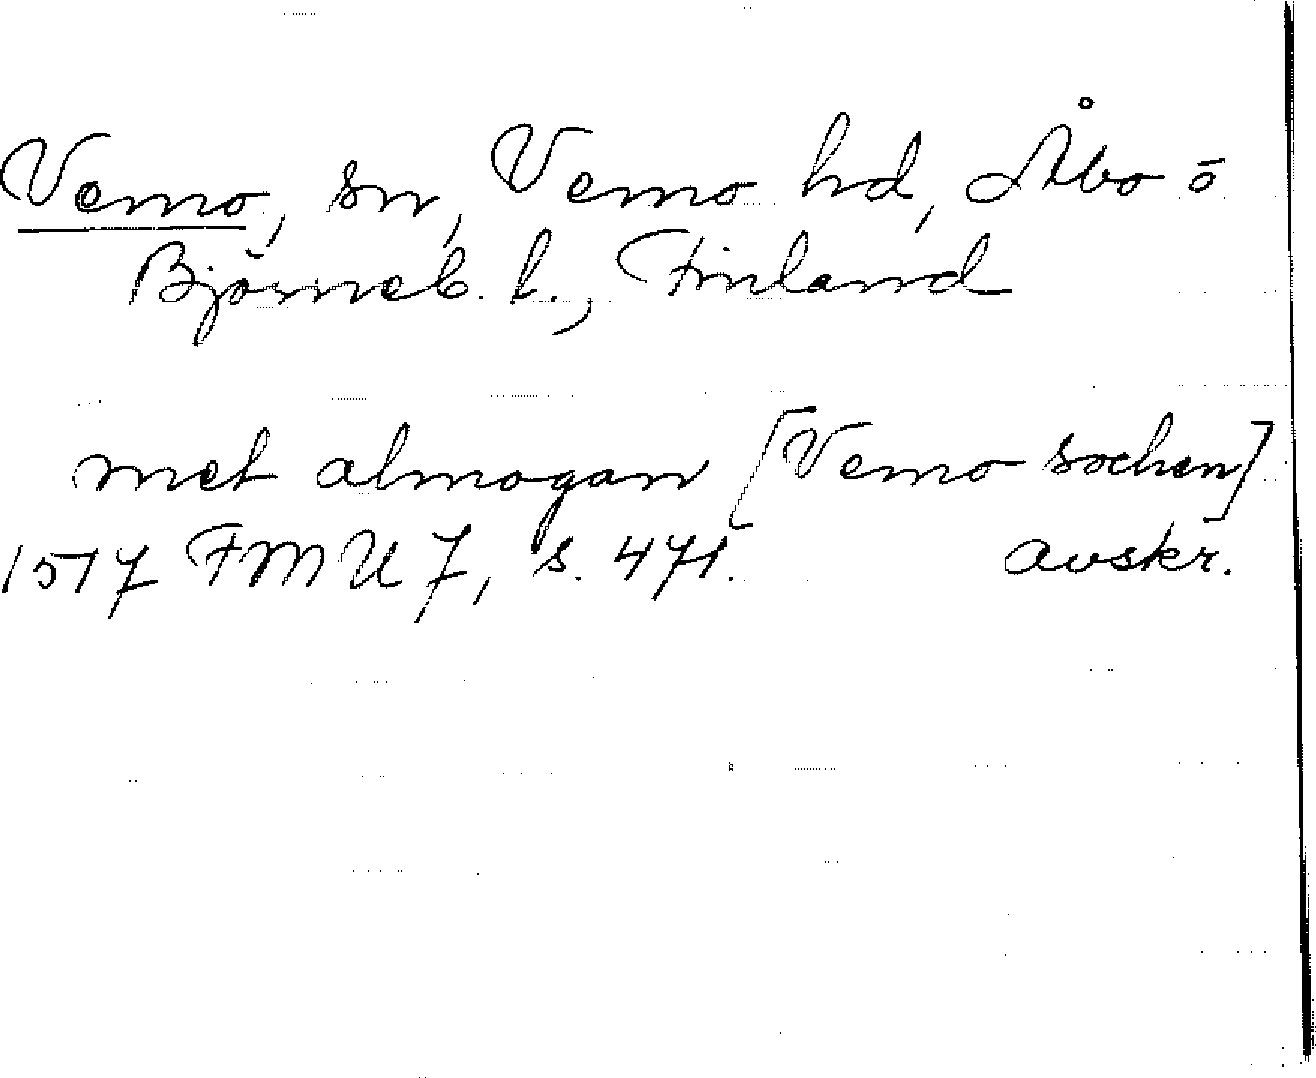 Vemo, sn, Vemo hd, Åbo o
Björneb. l., Finland
met almogan [Vemo sochen]
1517 FMU 7, s. 471. avskr.